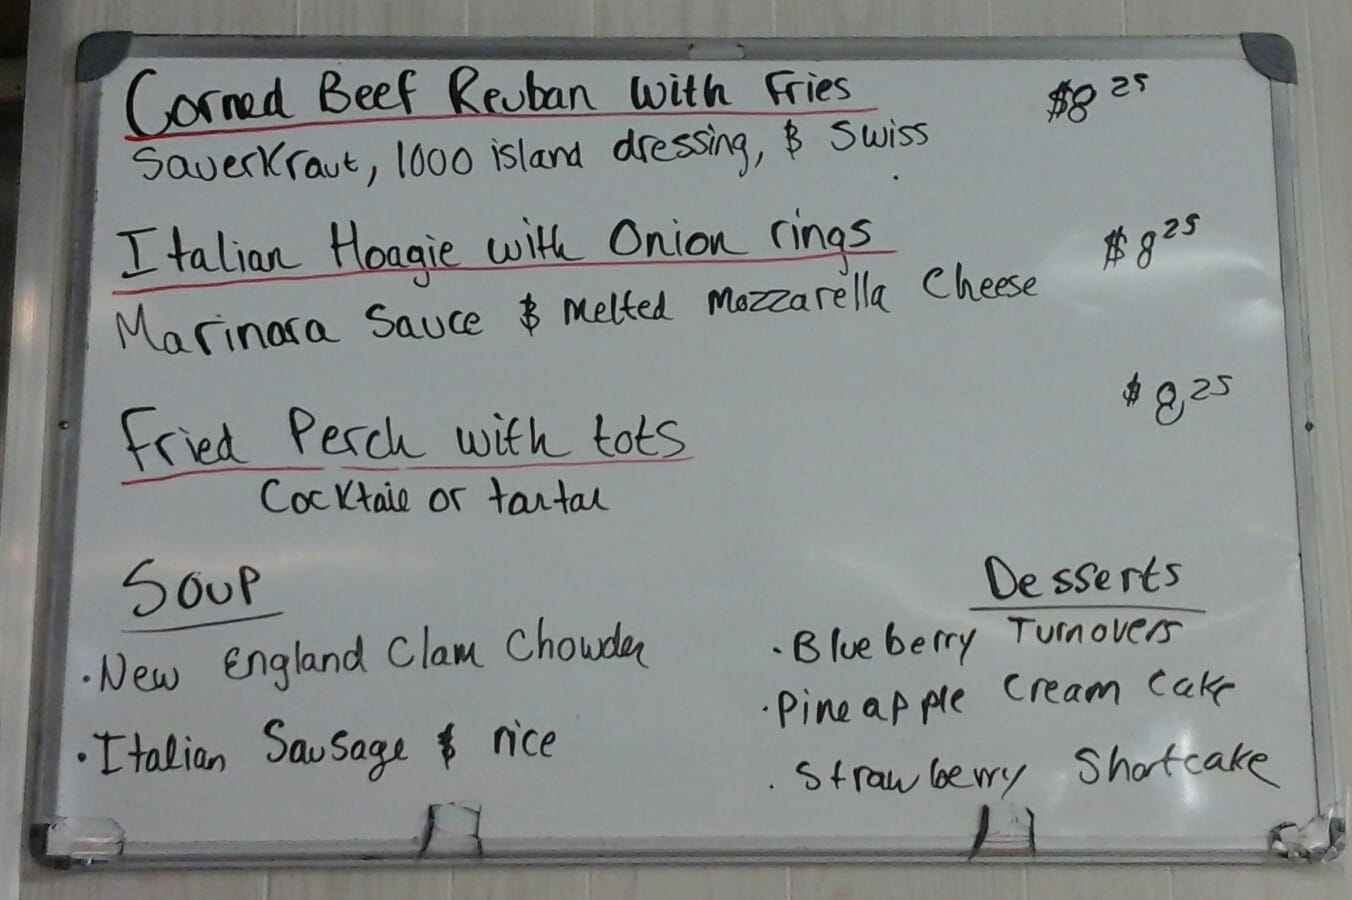 Corned Beef Reuban with Fries $8 25
Sauerkraut, 1000 island dressing, & Swiss
Italian Hoagie with Onion rings $8 25
Marinara Sauce & Melted Mozzarella Cheese
$8.25
Fried Perch with tots
Cocktail or tartar
Soup
· New England Clam Chowder
· Italian Sausage & rice
Desserts
· Blueberry Turnovers
· Pineapple Cream Cake
· Strawberry Shortcake